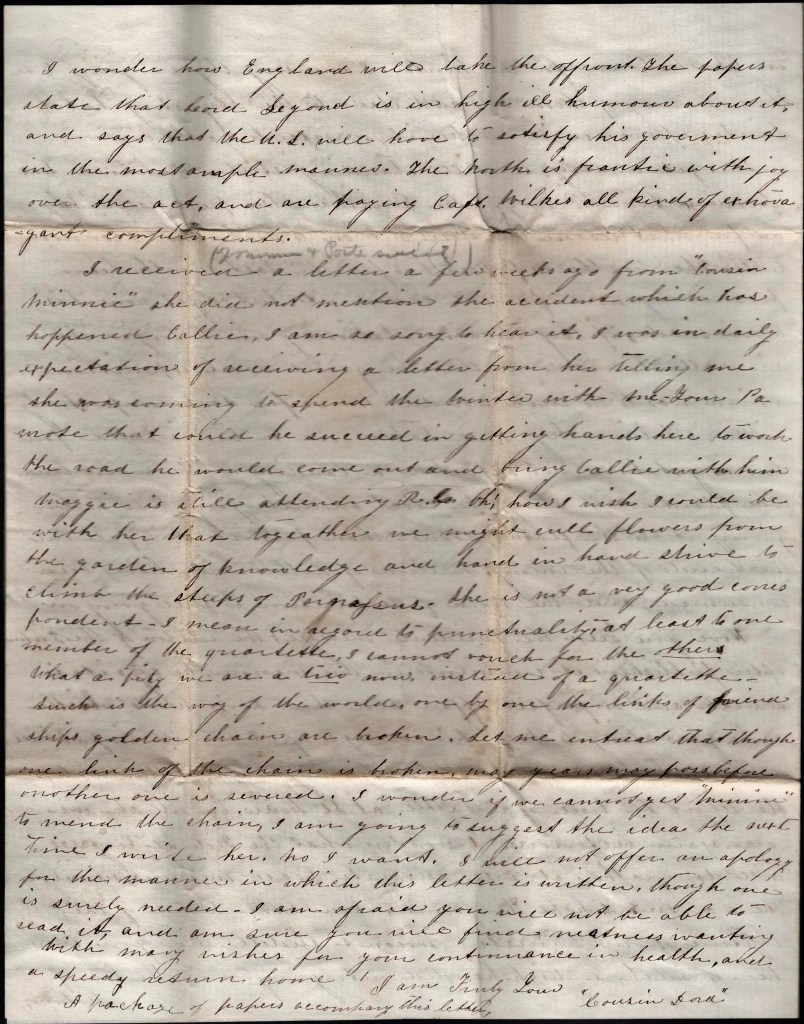 I wonder how England will take the affront. The papers
state that Lord Legond is in high ill humour about it,
and says that the U.S. will have to satisfy his goverment
in the most ample manner. The North is frantic with joy
over the act, and are paying Capt. Wilkes all kind of extrava
-gant compliments.
I received a letter a few weeks ago from "Cousin
Minnie" she did not mention the accident which has
happened Callie, I am so sorry to hear it, I was in daily
expectation of receiving a letter from her telling me
she was coming to spend the Winter with me. Your Pa
wrote that could he succeed in getting hands here to work
the road he would come out and bring Callie with him
Maggie is still attending R. Oh! how I wish I could be
with her that togeather we might cull flowers from
the garden of knowledge and hand in hand strive to
climb the steeps of Parnassus. She is not a very good corres
pondent - I mean in regard to punctuality, at least to one
member of the quartette, I cannot vouch for the others
What a pity we are a trio now instead of a quartette -
such is the way of the world, one by one the links of friend
ships golden chain are broken. Let me entreat that though
one link of the chain is broken, may years may pass before
another one is severed. I wonder if we cannot get "Minnie"
to mend the chain, I am going to suggest the idea the next
time I write her. No I want. I will not offer an apology
for the manner in which this letter is written, though one
is surely needed - I am afraid you will not be able to
read it, and am sure you will find neatness wanting
With many wishes for your continuance in health, and
a speedy return home I am Truly Your
"Cousin Dora"
A package of papers accompany this letter,